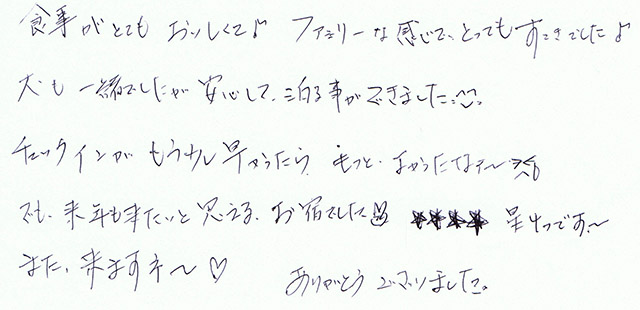 食事がとても おいしくて♪ ファミリーな感じで、とってもすてきでした♪
犬も一緒でしたが安心して、泊る事ができました。^^
チェックインがもう少し早かったら、もっと、よかったなァ〜
でも、来年も来たいと思える、お宿でした ★★★★ 星4つです〜
また、来ますネ〜♡ ありがとうございました。